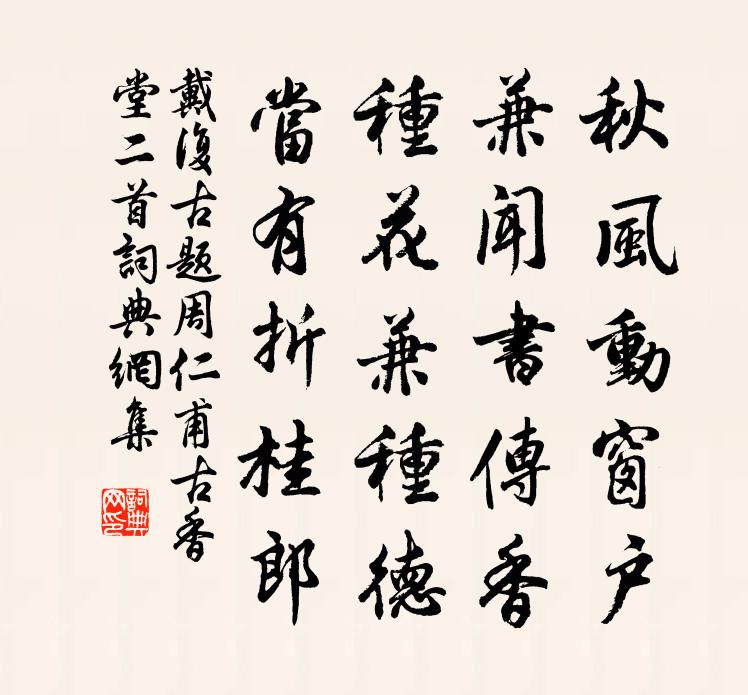 秋風動窗户
兼聞書傳香
種花兼種德
當有折桂郎
戴復古題周仁甫古香
堂二首詞典網集
詞典
网印